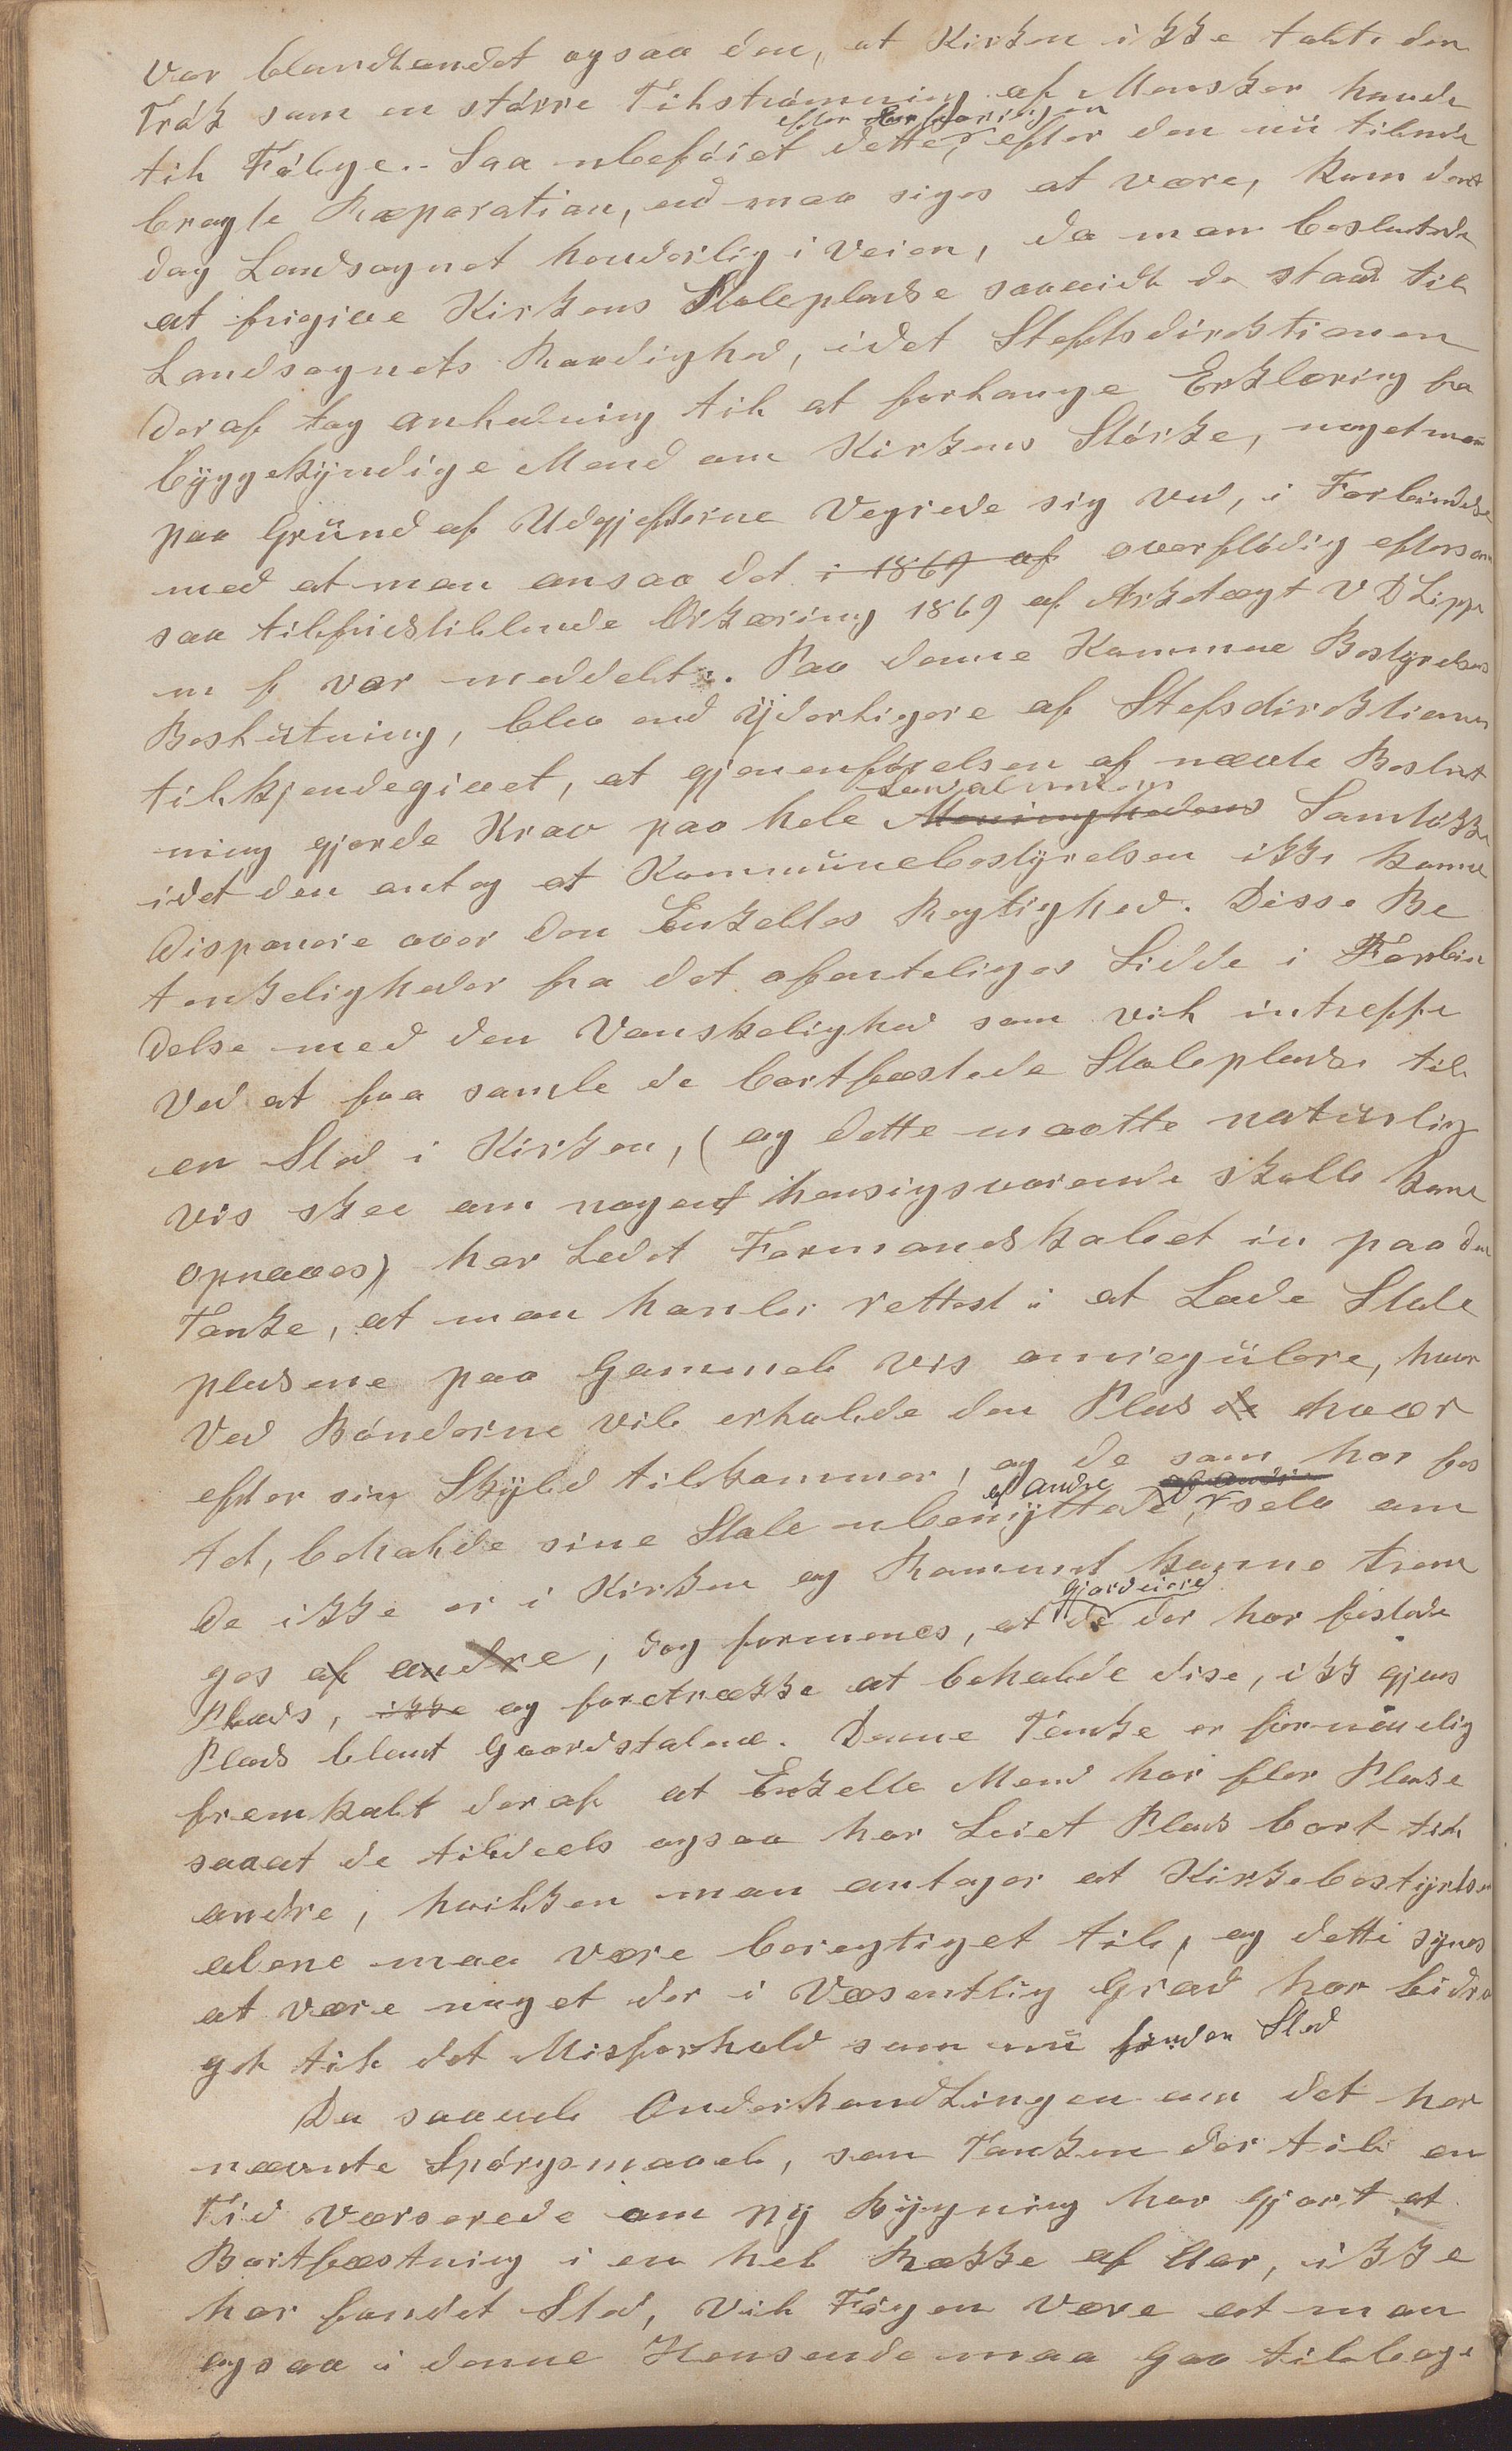 var blandtandet ogsaa den, at Kirken ikke talte den
Trók som en stórre Tilstrómning af Mensker havde
til Fólge. Saa ubefóiet dette, efter den nü tilende
bragte Ræparation, end maa siges at være, kom dette
dog Landsognet henderlig i Veien, da man besluttede
at frigive Kirkens Stolepladse saavidt de stod til
Landsognets Raadighed, idet Steftsdirektionen
deraf tog anledning til at forlange Erklæring fra
byggekyndige Mend om Kirkens Stórke, noget man
paa Gründ af Udgjefterne Vegrede sig ved, i Forbindelse
med at man ansaa det i 1869 af overflódig eftersom
saa tilfridstillende Erkæring 1869 af Arketægt V D Lippe
m f var meddelt. Paa denne Kommune Bestyrelses
Beslutning, blev end yderligere af Steftsdirektionen
tilkjendegivet, at gjenenfórelsen af nævte Beslut
ning gjorde Krav paa hele Landalmuens Meninghedens Samtókke
idet den antog at Kommünebestyrelsen ikke kunne
disponere over den Enkeltes Regtighed. Disse Be
tenkeligheder fra det ofenteliges Sidde i Forbin
delse med den Vanskelighed som vil intreffe
Ved at faa samle de bortfæstede Stoleplader til
en Sted i Kirken, (og dette maatte natürlig
vis skee om noget hensigsvarende skulle kune
opnaaes) har Ledet Formandskabet in paa den
Tanke, at man hanler rettest i at Lade Stole
pladsene paa Gammel vis omregülere, hvor
Ved Bónderne vil erholde den Plads de hvær
efter sin Skyld tilkommer, og de som har fes
tet, beholde sine Stole ubenyttede af Andre af andre, selv om
de ikke er i Kirken og Rummet kunne tren
ges af andre, dog formenes, at de Gjordeiere der har féstede
Plads, ikke og foretrække at beholde dise, ikk gjens
Plads blant Gaardstolene. Denne Tanke er fornémelig
fremkalt deraf at Enkelte Mend har fler Pladse
saaat de tildeels ogsaa har Leiet Plads bort til
andre, hvilken man antager at Kirkebestyrelsen
alene maa være beregtiget til, og dette synes
at være noget der i Væsentlig Grad har bidra
get til det Misforhold som nü finder Sted
Da saavel Underhandlingen om det her
nævnte Spórgsmaal, som Tanken der til en
Tid Værserede om ny Bygning har gjort at
Bortfæstning i en hel Række af Aar, ikke
har fundet Sted, Vil Fógen være at man
ogsaa i denne Hensende maa Gaa tilbage